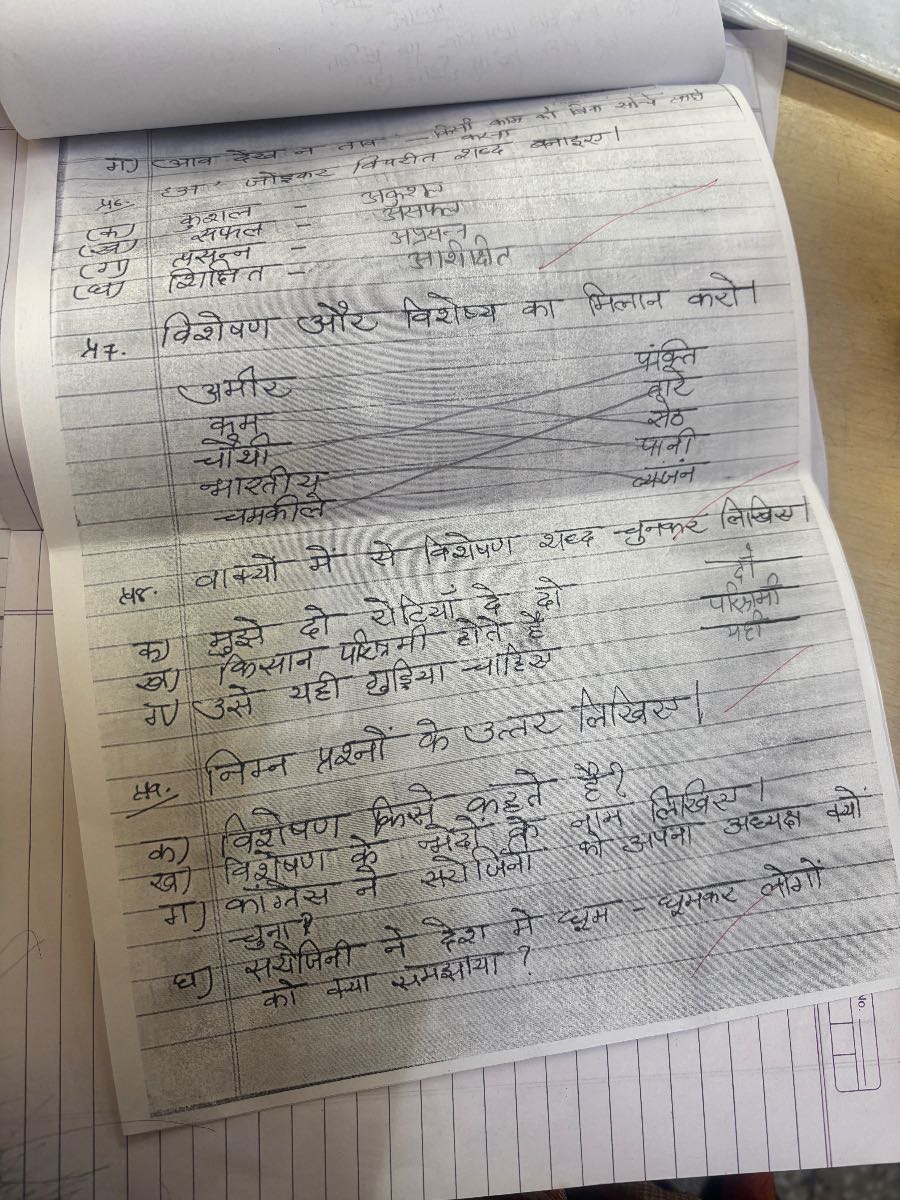 ग) आव देखा न ताव - किसी काम को बिना सोचे समझे करना
प्र6. 'अ' जोड़कर विपरीत शब्द बनाइए।
(क) कुशल - अकुशल
(ख) सफल - असफल
(ग) प्रसन्न - अप्रसन्न
(घ) शिक्षित - अशिक्षित
प्र7. विशेषण और विशेष्य का मिलान करो।
अमीर पंक्ति
कुम
चौथी सेठ
भारतीय पानी
चमकीले व्यजंन
प्र8. वाक्यों में से विशेषण शब्द चुनकर लिखिए।
क) मुझे दो रोटियाँ दे दो दो
ख) किसान परिश्रमी होते है परिश्रमी
ग) उसे यही गुड़िया चाहिए यही
प्र9. निम्न प्रश्नों के उत्तर लिखिए।
क) विशेषण किसे कहते है?
ख) विशेषण के भेदों के नाम लिखिए।
ग) कांग्रेस ने सरोजिनी को अपना अध्यक्ष क्यों
चुना?
घ) सरोजिनी ने देश में घूम - घूमकर लोगों
को क्या समझाया?
NO.